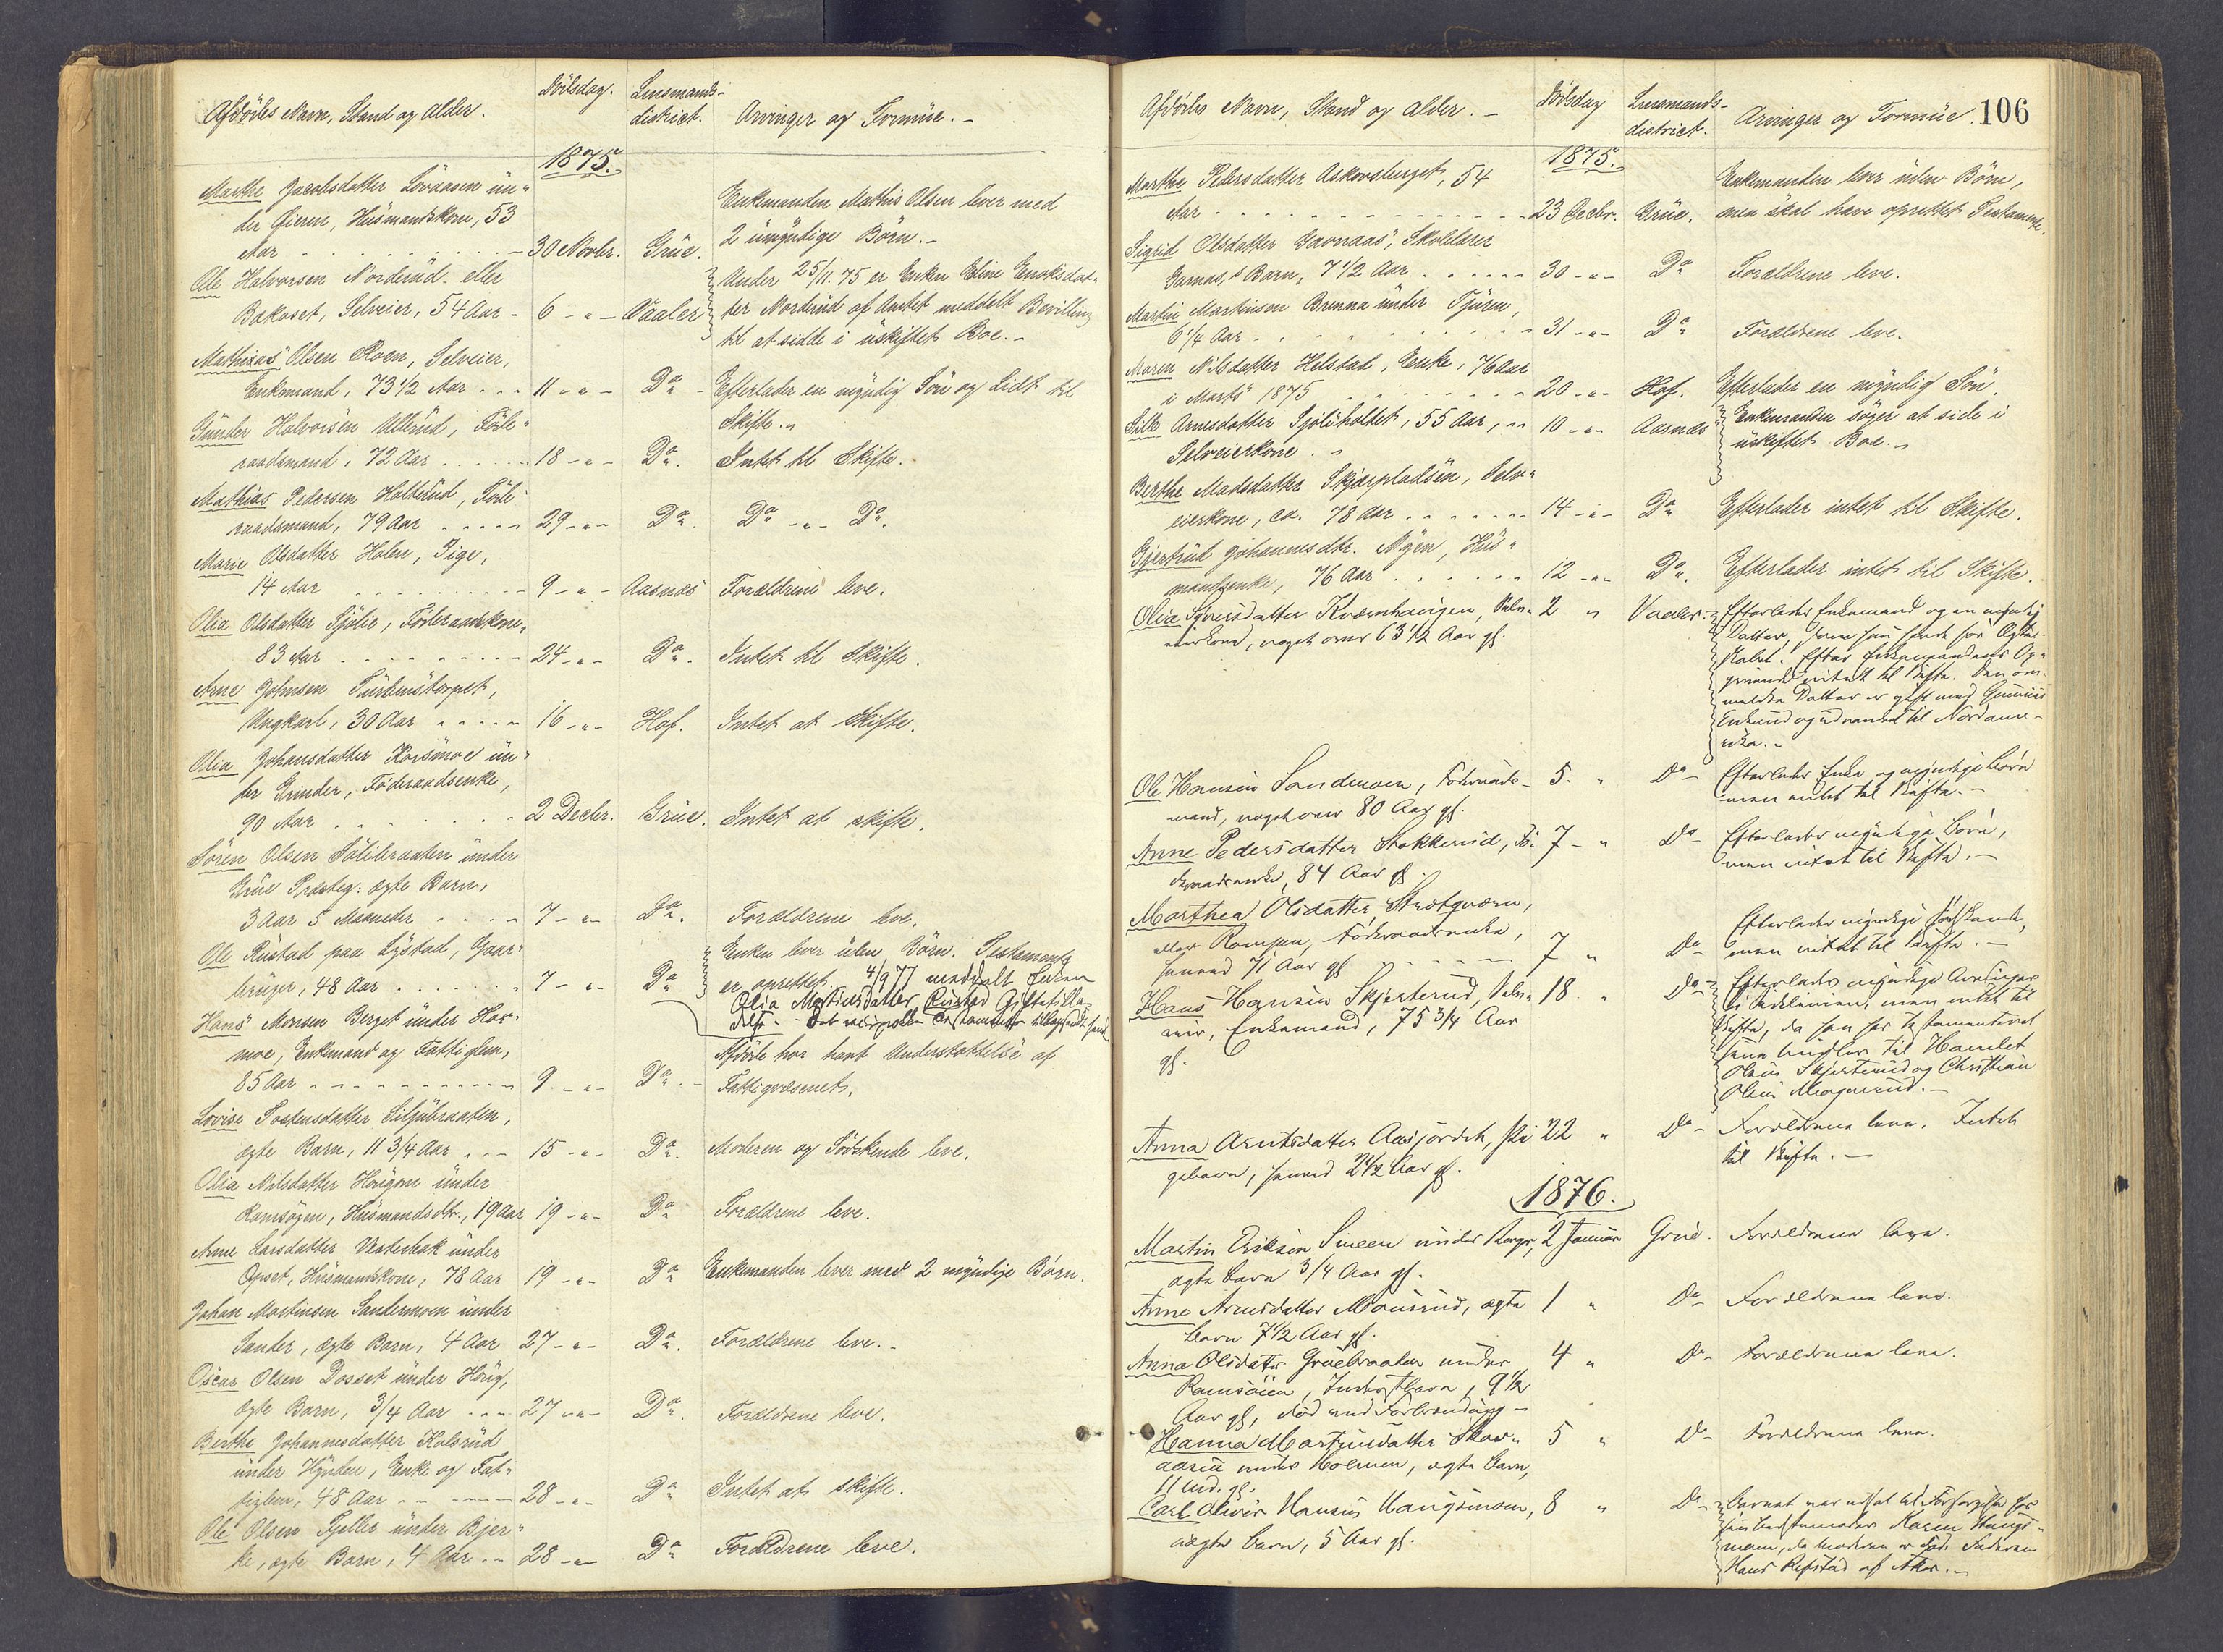 Afdödes Navn, Stand og Alder.
Dödsdag.
Lensmands-
district.
Arvinger og Formüe.-
1875.
Marthe Jacobsdatter Lövaasen ün-
der Öieren, Hüsmandskone, 53
Aar - 30 Novbr. Grüe.
Enkemanden Mathis Olsen lever med
2 ümyndige Börn.-
Ole Halvorsen Norderüd eller
Bakoset, Selveier, 54 Aar - 6 - " - Vaaler
Under 25/11. 75 er Enken Eline Enoksdat-
ter Norderüd af Amtet meddelt Bevilling
til at sidde i üskiftet Boe.-
Mathias Olsen Moen, Selveier,
Enkemand, 73 1/2 Aar - 11 - " - Do - Efterlader en myndig Sön og Lidt til
Skifte.
Günder Halvorsen Ullerüd, Föde-
raadsmand, 72 Aar - 18 - " - Do. Intet til Skifte.
Mathias Pedersen Halterüd, Föde-
raadsmand, 79 Aar - 29 - " - Do. Do - " - Do.
Marie Olsdatter Holen, Pige,
14 Aar - 9 - " - Aasnes Forældrene leve.
Olia Olsdatter Sjölie, Föderaadskone,
83 Aar - 24 - " - Do. Intet til Skifte.
Arne Johnsen
Ungkarl, 30 Aar - 16 - " - Hof. Intet at Skifte.
Olea Johansdatter Korsmoe ün-
der Grinder, Föderaadsenke,
90 Aar - 2 Decbr. Grüe. Intet at skifte.
Sören Olsen Solibraaten ünder
Grüe Præsteg: ægte Barn,
3 Aar 5 Maaneder - 7 - " - Do. Forældrene leve.
Ole Rüstad paa Lystad, Gaar-
brüger, 48 Aar - 7 - " - Do
Enken lever üden Börn. Testamente
er oprettet. 4/9 77 meddelt Enken
Olia Martinsdatter Rustad
Hans Monsen Berget ünder Hor-
moe, Enkemand og Fattiglem,
85 Aar - 9 - " - Do. -
Afdöde har havt Understöttelse af
Fattigvæsenet.
Lovise Torstensdatter Siljübraaten,
ægte Barn, 11 3/4 Aar - 15 - " - Do. Moderen og Södskende leve.
Olia Nilsdatter Högmo ünder
Romsögen, Hüsmandsdtr., 19 Aar 19 - " - Do Forældrene leve.
Anne Larsdatter Vesterbak ünder
Opset, Hüsmandskone, 78 Aar 19 - " - Do Enkemanden lever med 2 myndige Börn.
Johan Martinsen Sandermoen ünder
Sander, ægte Barn, 4 Aar 27 - " - Do. Forældrene leve.-
Oscar Olsen Dosset ünder Hörig,
ægte Barn, 3/4 Aar - 27 - " - Do. Forældrene leve.
Berthe Johannesdatter Kolsrüd
ünder Hynden, Enke og Fat-
tiglem, 48 Aar - 28 - " - Do Intet at skifte.
Ole Olsen Tjeller ünder Bjer-
ke, ægte Barn, 4 Aar - 28 - " - Do Forældrene leve.
Afdödes Navn, Stand og Alder. -
Dödsdag
Lensmands-
district.
Arvinger og Formüe. 106
1875.
Marthe Pedersdatter Askovsberget, 54
Aar - 23 Decbr. Grüe.
Enkemanden lever üden Börn,
men skal have oprettet Testamente.
Sigrid Olsdatter Garnaas, Skolelærer
Garnas,s Barn, 7 1/2 Aar - 30 - " - Do Forældrene leve.
Martin Martinsen Brenna ünder Tjüren,
6 1/4 Aar - 31 - " - Do Forældrene leve.
Maren Nilsdatter Helstad, Enke, 76 Aar
i Marts 1875 - 20 - " - Hof. Efterlader en myndig Sön.
Sille Arnesdatter Sjöliholtet, 55 Aar, 10 - " - Aasnes
Selveierkone.
Enkemanden söger at side i
üskiftet Boe.
Berthe Madsdatter Skjærpladsen, Selv-
eierkone, ca. 78 Aar - 14 - " - Do Efterlader intet til Skifte.
Gjertrüd Johannesdtr. Myen, Hüs-
mandsenke, 76 Aar - 12 - " - Do. Efterlader intet til Skifte.
Olia Syversdatter Kværnhaugen, Selv- 2 " Vaaler.
eierkone, noget over 63 1/2 Aar gl.
Efterlader Enkemand og en myndig
Datter, som hun havde för Ægte-
skabet. Efter Enkemandens Op-
givende intet til Skifte. Den om-
meldte Datter er gift med
Enlund og udvandret til Nordame-
rika.-
Ole Hansen Sandmoen, Föderaads- 5. " Do -
mand, noget over 80 Aar gl.
Efterlader Enke og myndige Börn
men intet til Skifte.-
Anne Pedersdatter Stokkerud, Fö- 7 - " Do -
deraadsenke, 84 Aar gl.
Efterlader myndige Börn,
men intet til Skifte.-
Marthea Olsdatter
eller Romsen, Föderaadsenke,
henved 71 Aar gl - 7 " Do
Efterlader myndige Södskende,
men intet til Skifte.-
Hans Hansen Skjesterud, Selv- 18. " Do -
eier, Enkemand, 75 3/4 Aar
gl.
Efterlader myndige Arvinger
i Sidelinien, men intet til
Skifte, da han har testamenteret
sine Midler til Hamlet
Olsen Skjesterud og Christian
Olsen Mognerud.-
Anna Arntsdatter Aasjordet, 22 " Do -
gebarn, henved 2 1/2 Aar gl.
Forældrene leve. Intet
til Skifte.-
1876.
Martin Eriksen Smeen under Berger, 2 Januar Grüe. Forældrene leve.
ægte barn 3/4 Aar gl.
Anne Arnesdatter Monsrud, ægte 1 " Do - Forældrene leve.
barn 7 1/2 Aar gl.
Anna Olsdatter Gruebraaten under 4 " Do - Forældrene leve.
Romsöien, Inderstbarn, 9 1/2
Aar gl, död ved Forbrænding -
Hanna Martinsdatter Skov- 5 " Do - Forældrene leve.
aasen under Holmen, ægte barn,
11 Md. gl.
Carl Oliver Hansen Haugsmoen, 8 " Do -
uægte barn, 5 Aar gl.
Barnet var udsat til Forsörgelse hos
sin Bedstemoder Karen Haugs-
moen, da Moderen er död. Faderen
Hans Refstad af Aker.-